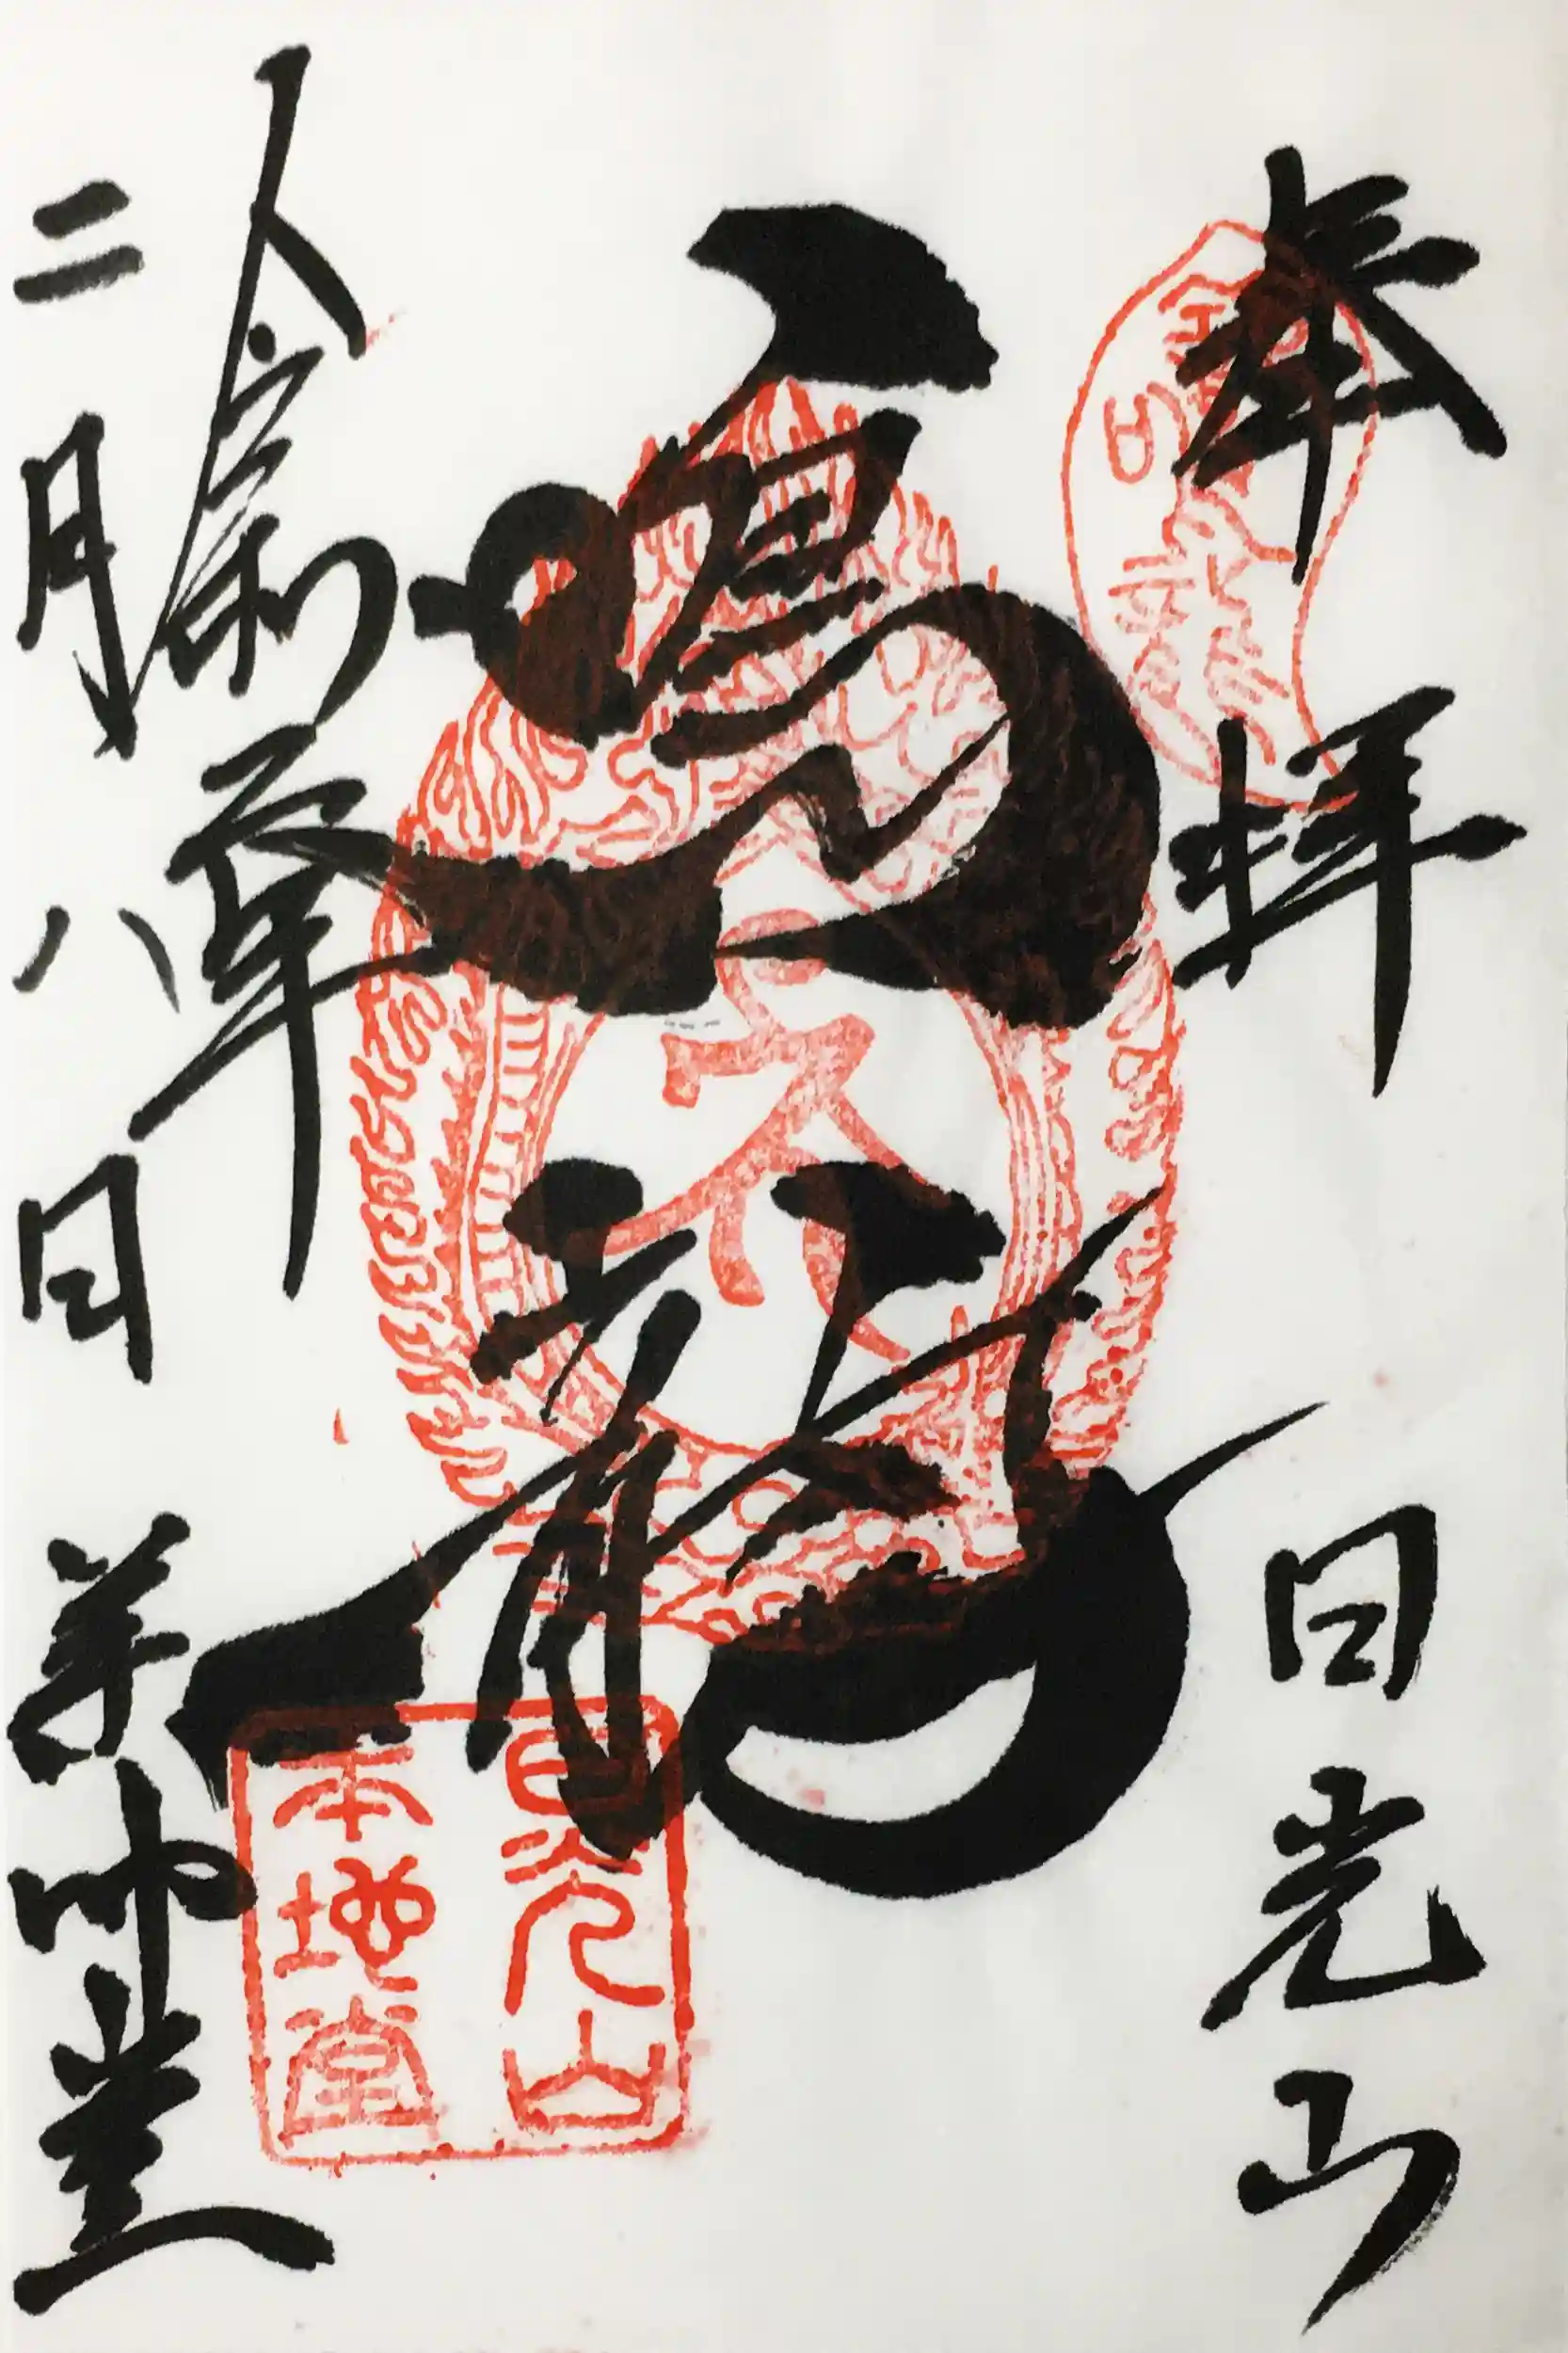 奉拝
日光山
鳴龍
令和元年
二月八日
薬師堂
日光山
本地堂